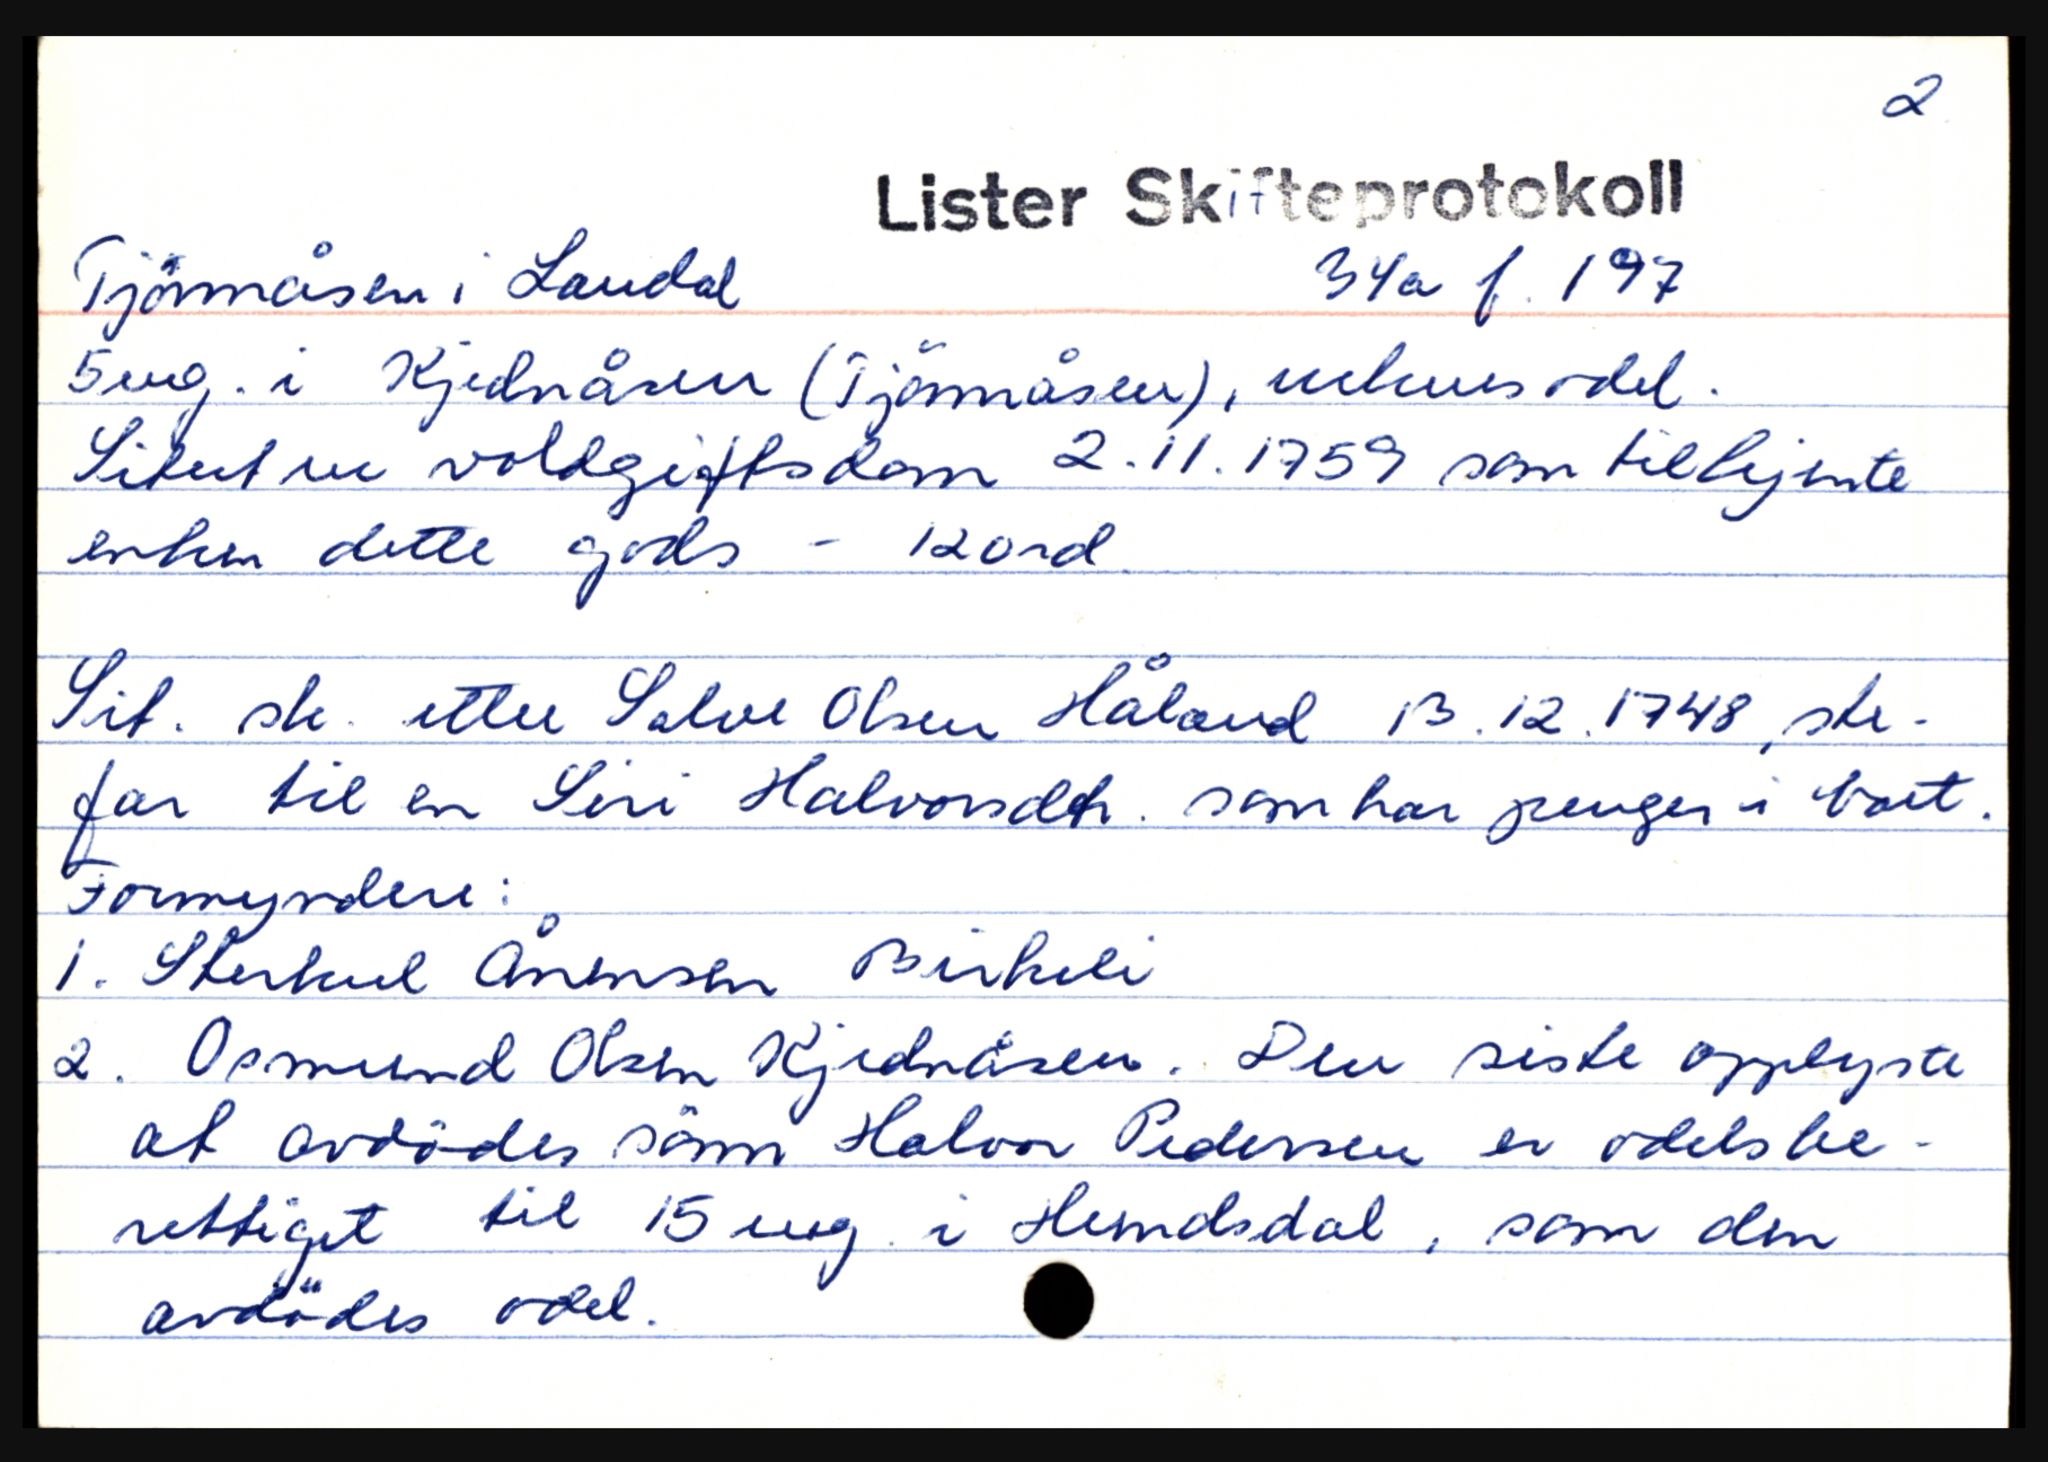 2
Lister Skifteprotokoll
Tjömåsen i Laudal 34a f. 197
5 eng. i Kjednåsen (Tjömåsen), enkens odel.
Sitert en voldgiftsdom 2.11.1759 som tilkjente
enken dette gods - 120 rd.
Sit. sk. etter Salve Olsen Håland 13.12.1748, ste-
far til en Siri Halvorsdtr. som har penger i boet.
Formyndere:
1. Sterkul Ånensen Birkeli
2. Osmund Olsen Kjednåsen. Den siste opplyste
at avdödes sönn Halvor Pedersen er odelsbe-
rettiget til 15 eng. i Hundsdal, som den
avdödes odel.